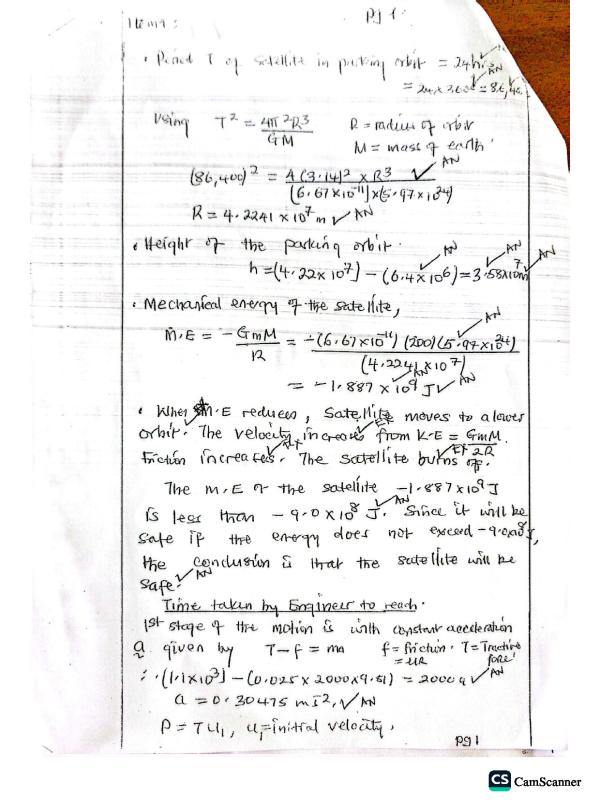 Item 1 :
pg 1.
• Period T of satellite in parking orbit = 24hrs AN
= 24 x 3600 = 86,400
Using T² = 4π²R³/GM R = radius of orbit
M = mass of earth.
(86,400)² = 4(3.14)² x R³/(6.67x10⁻¹¹)x(5.97x10²⁴) AN
R = 4.2241 x 10⁷m AN
• Height of the parking orbit.
h = (4.22x10⁷) - (6.4x10⁶) = 3.58x10⁷m AN AN AN
• Mechanical energy of the satellite,
M.E = -GmM/R = -(6.67x10⁻¹¹)(200)(5.97x10²⁴)/(4.2241x10⁷) AN
= -1.887 x 10⁹ J AN AN
• When M.E reduces, Satellite moves to a lower
orbit. The velocity increases from K.E = GmM/2R.
Friction increases. The satellite burns off.
The M.E of the satellite -1.887x10⁹J
is less than -9.0x10⁸ J. Since it will be AN
safe if the energy does not exceed -9.0x10⁸J,
the conclusion is that the satellite will be
safe. AN
Time taken by Engineer to reach.
1st stage of the motion is with constant acceleration
a given by T-f = ma f = friction. T = Tractive
= μR force.
∴ (1.1x10³) - (0.025 x 2000x9.81) = 2000a AN
a = 0.30475 ms⁻², AN
P = TU₁, U₁=initial velocity,
pg 1
CS CamScanner